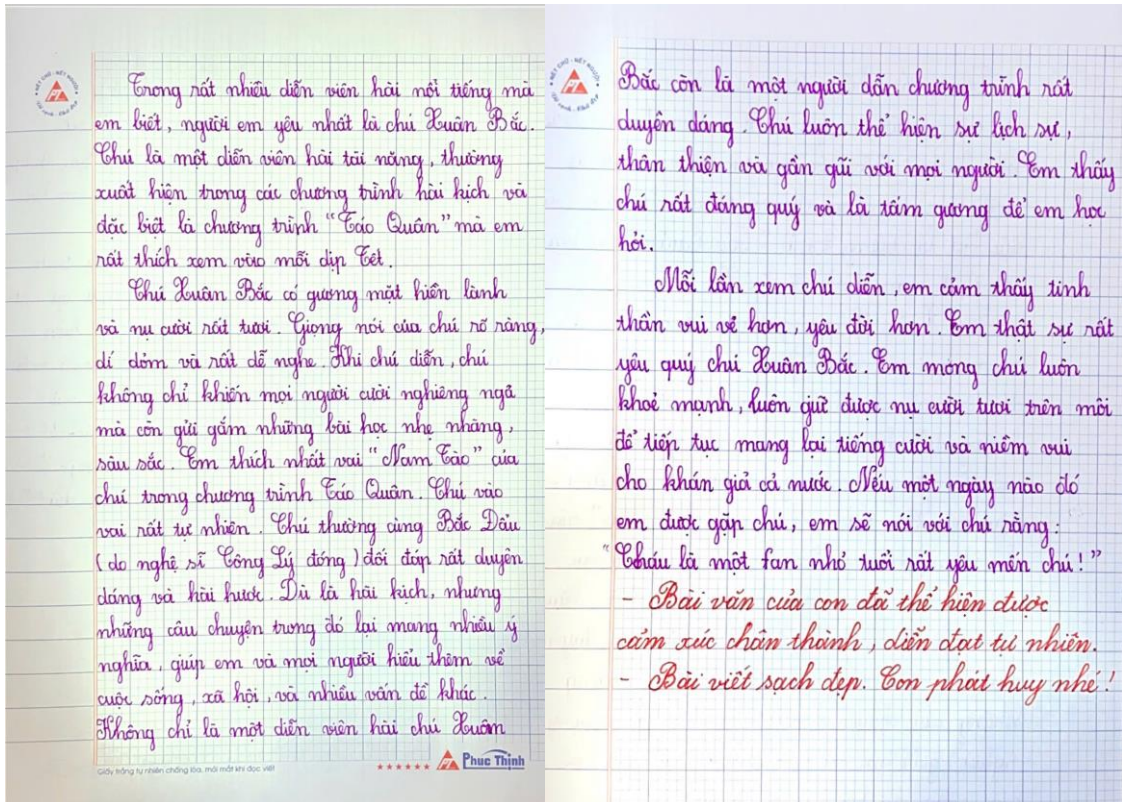 NÉT CHỮ - NẾT NGƯỜI
Trong rất nhiều diễn viên hài nổi tiếng mà
em biết, người em yêu nhất là chú Xuân Bắc.
Chú là một diễn viên hài tài năng, thường
xuất hiện trong các chương trình hài kịch và
đặc biệt là chương trình "Táo Quân" mà em
rất thích xem vào mỗi dịp Tết.
Chú Xuân Bắc có gương mặt hiền lành
và nụ cười rất tươi. Giọng nói của chú rõ ràng,
dí dỏm và rất dễ nghe. Khi chú diễn, chú
không chỉ khiến mọi người cười nghiêng ngả
mà còn gửi gắm những bài học nhẹ nhàng,
sâu sắc. Em thích nhất vai "Nam Tào" của
chú trong chương trình Táo Quân. Chú vào
vai rất tự nhiên. Chú thường cùng Bắc Đẩu
(do nghệ sĩ Công Lý đóng) đối đáp rất duyên
dáng và hài hước. Dù là hài kịch, nhưng
những câu chuyện trong đó lại mang nhiều ý
nghĩa, giúp em và mọi người hiểu thêm về
cuộc sống, xã hội, và nhiều vấn đề khác.
Không chỉ là một diễn viên hài chú Xuân
Giấy trắng tự nhiên chống lóa, mỏi mắt khi đọc viết
Phuc Thịnh
NÉT CHỮ - NẾT NGƯỜI
Bắc còn là một người dẫn chương trình rất
duyên dáng. Chú luôn thể hiện sự lịch sự,
thân thiện và gần gũi với mọi người. Em thấy
chú rất đáng quý và là tấm gương để em học
hỏi.
Mỗi lần xem chú diễn, em cảm thấy tinh
thần vui vẻ hơn, yêu đời hơn. Em thật sự rất
yêu quý chú Xuân Bắc. Em mong chú luôn
khoẻ mạnh, luôn giữ được nụ cười tươi trên môi
để tiếp tục mang lại tiếng cười và niềm vui
cho khán giả cả nước. Nếu một ngày nào đó
em được gặp chú, em sẽ nói với chú rằng:
"Cháu là một fan nhỏ tuổi rất yêu mến chú!"
- Bài văn của con đã thể hiện được
cảm xúc chân thành, diễn đạt tự nhiên.
- Bài viết sạch đẹp. Con phát huy nhé!